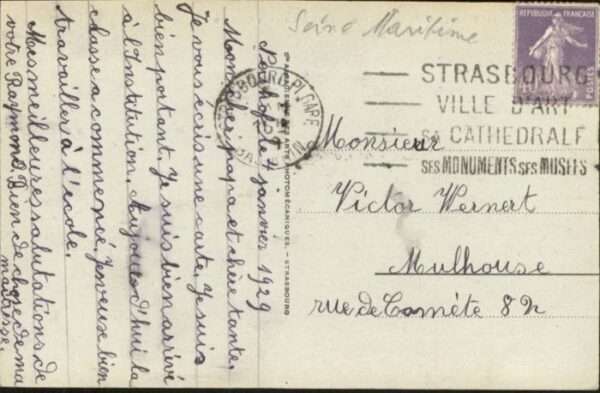 Seine Maritime
RÉPUBLIQUE FRANÇAISE
POSTES
STRASBOURG
VILLE D'ART
SA CATHEDRALE
SES MONUMENTS SES MUSÉES
STRASBOURG PL. GARE
Monsieur
Victor Wernert
Mulhouse
rue de Comète 8 
PHOTOMÉCANIQUES. - STRASBOURG
le 4 janvier 1929
Mon cher papa et chère tante.
Je vous écris une carte. Je suis
bien portant. Je suis bien arrivé
à l'Institution. Aujourd'hui la
classe a commencé. Je veux bien
travailler à l'école.
Mes meilleures salutations de
votre Raymond. Bien de chose de ma
maîtresse.